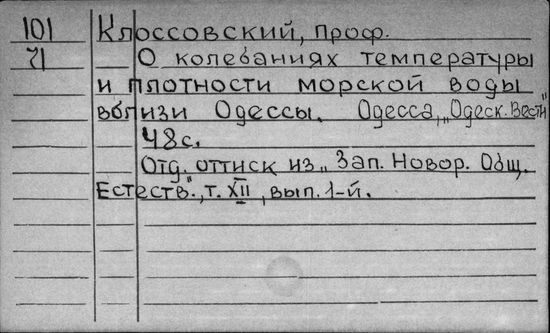 101 Клоссовский, проф.
71 О колебаниях температуры
и плотности морской воды
вблизи Одессы. Одесса, „Одеск. Вестн"
48с.
Отд. оттиск из „Зап. Новор. Общ.
Естеств.", т. XII, вып. 1-й.